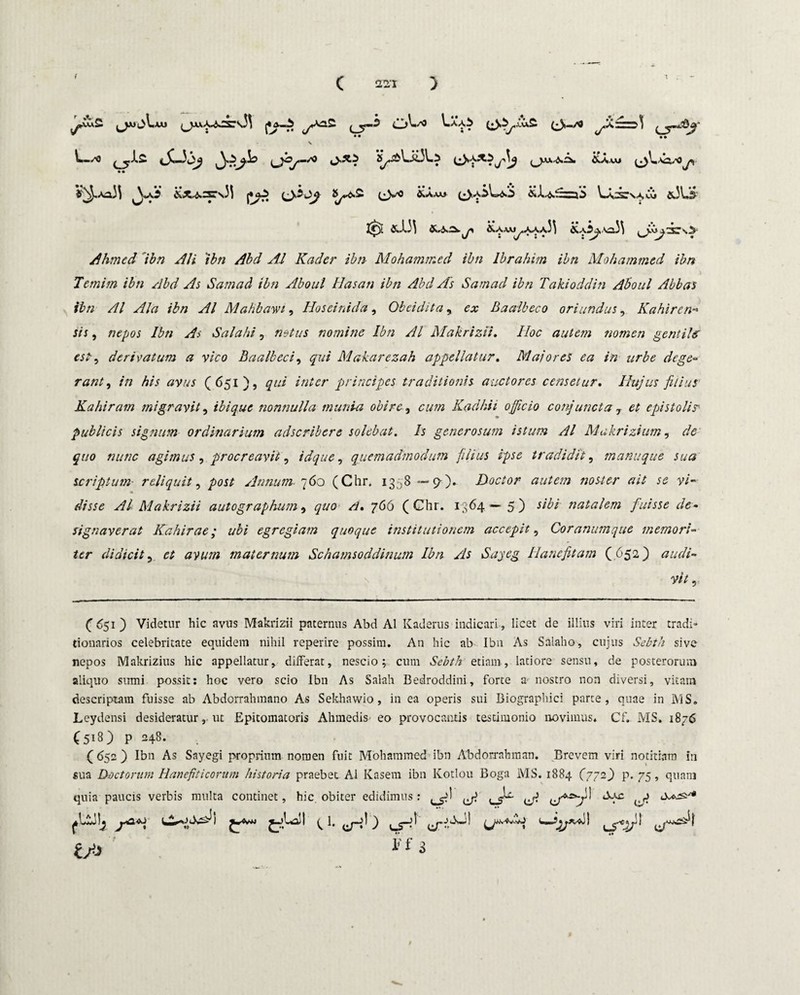 ( 221 )
من مات في عصر يوم الخميس سادس عشر
رمضان سنة خمس واربعين بالقاهرة بعد مرض طويل وذلك على ما
قاله شيخنا تكملة ثمانين سنة من عمره ودفن يوم الجمعة قبل الصلاة
بحوش الصوفية البيبرسية رحمه الله
Ahmed ibn Ali ibn Abd Al Kader ibn Mohammed ibn Ibrahim ibn Mohammed ibn
Temim ibn Abd As Samad ibn Aboul Hasan ibn Abd As Samad ibn Takioddin Aboul Abbas
ibn Al Ala ibn Al Mahbawi, Hoseinida, Obeidita, ex Baalbeco oriundus, Kahiren-
sis, nepos Ibn As Salahi, notus nomine Ibn Al Makrizii. Hoc autem nomen gentile
est, derivatum a vico Baalbeci, qui Makarezah appellatur. Majores ea in urbe dege-
rant, in his avus (651), qui inter principes traditionis auctores censetur. Hujus filius
Kahiram migravit, ibique nonnulla munia obire, cum Kadhii officio conjuncta, et epistolis
publicis signum ordinarium adscribere solebat. Is generosum istum Al Makrizium, de
quo nunc agimus, procreavit, idque, quemadmodum filius ipse tradidit, manuque sua
scriptum reliquit, post Annum 760 (Chr. 1358—9). Doctor autem noster ait se vi-
disse Al Makrizii autographum, quo A. 766 (Chr. 1364—5) sibi natalem fuisse de-
signaverat Kahirae; ubi egregiam quoque institutionem accepit, Coranumque memori-
ter didicit, et avum maternum Schamsoddinum Ibn As Sayeg Hanefitam (652) audi-
vit,
(651) Videtur hic avus Makrizii paternus Abd Al Kaderus indicari, licet de illius viri inter tradi-
tionarios celebritate equidem nihil reperire possim. An hic ab Ibn As Salaho, cujus Sebth sive
nepos Makrizius hic appellatur, differat, nescio; cum Sebth etiam, latiore sensu, de posterorum
aliquo sumi possit: hoc vero scio Ibn As Salah Bedroddini, forte a nostro non diversi, vitam
descriptam fuisse ab Abdorrahmano As Sekhawio, in ea operis sui Biographici parte, quae in MS.
Leydensi desideratur, ut Epitomatoris Ahmedis eo provocantis testimonio novimus. Cf. MS. 1876
(518) p 248.
(652) Ibn As Sayegi proprium nomen fuit Mohammed ibn Abdorrahman. Brevem viri notitiam in
sua Doctorum Hanefiticorum historia praebet Al Kasem ibn Kotlou Boga MS. 1884 (772) p. 75, quam
quia paucis verbis multa continet, hic obiter edidimus: محمد بن عبد الرحمن بن على بن ابى
الحسن الزمردى المعروف بشمس الدين بن (l. ابن) الصايغ سمع الحديث بمصر والشام
Ff 3